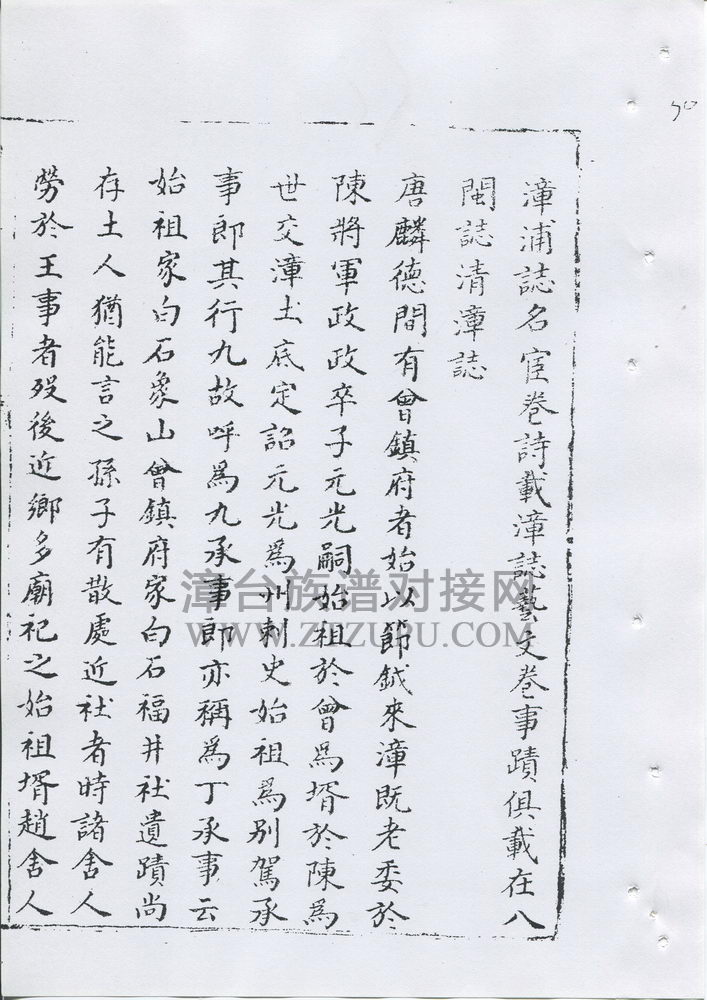 漳浦誌名宦卷詩載漳誌藝文卷事蹟俱載在八
閩誌清漳誌
唐麟德間有曾鎮府者始以節鉞來漳既老委於
陳將軍政政卒子元光嗣始祖於曾為壻於陳為
世交漳土底定詔元光為州刺史始祖為別駕承
事郎其行九故呼爲九承事郎亦稱為丁承事云
始祖家白石象山曾鎮府家白石福井社遺蹟尚
存土人猶能言之孫子有散處近社者時諸舍人
勞於王事者歿後近鄉多廟祀之始祖壻趙舍人
漳台族谱对接网
WWW.ZTZUPU.COM